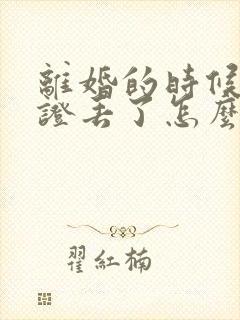 離婚的時候
證丟了怎麼
翟紅楠